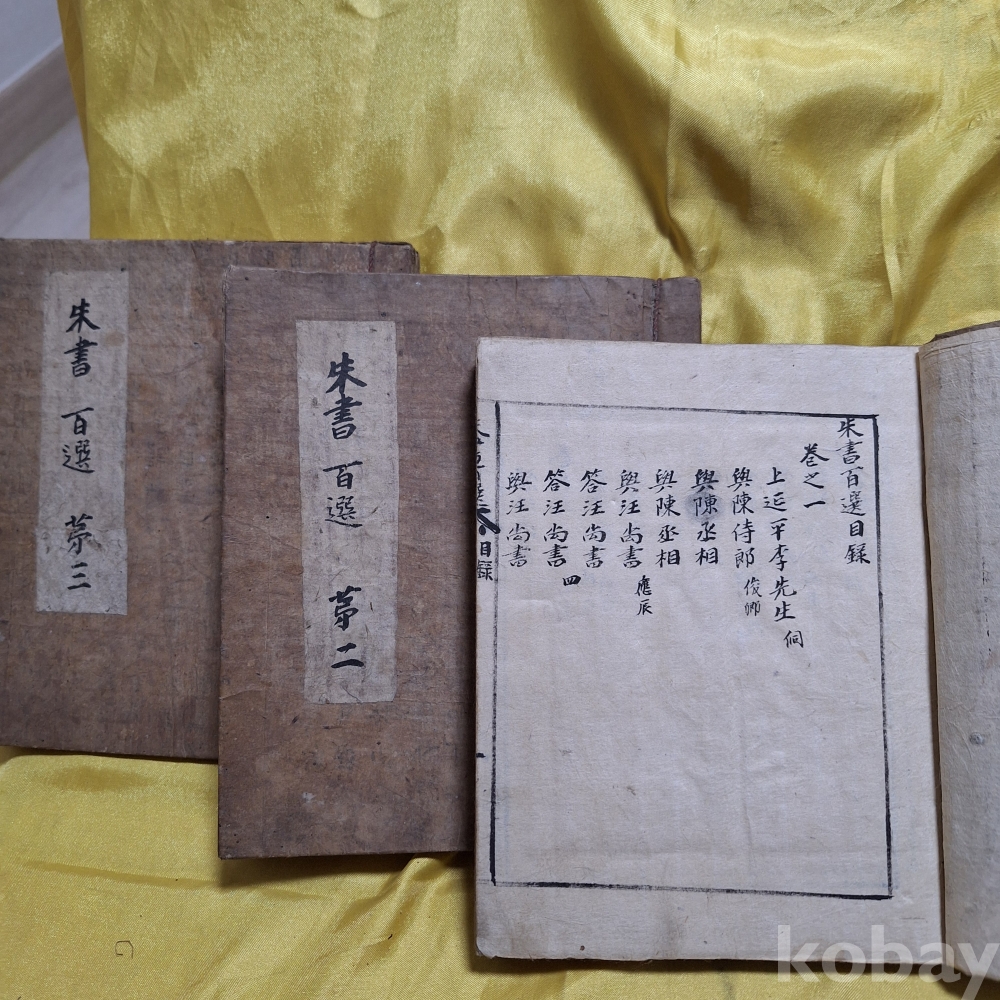 朱書百選 第三
朱書百選 第二
朱書百選目録
卷之一
上延平李先生 侗
與陳侍郎 俊卿
與陳丞相
與陳丞相
與汪尚書 應辰
答汪尚書
答汪尚書 四
與汪尚書
目録
kobay